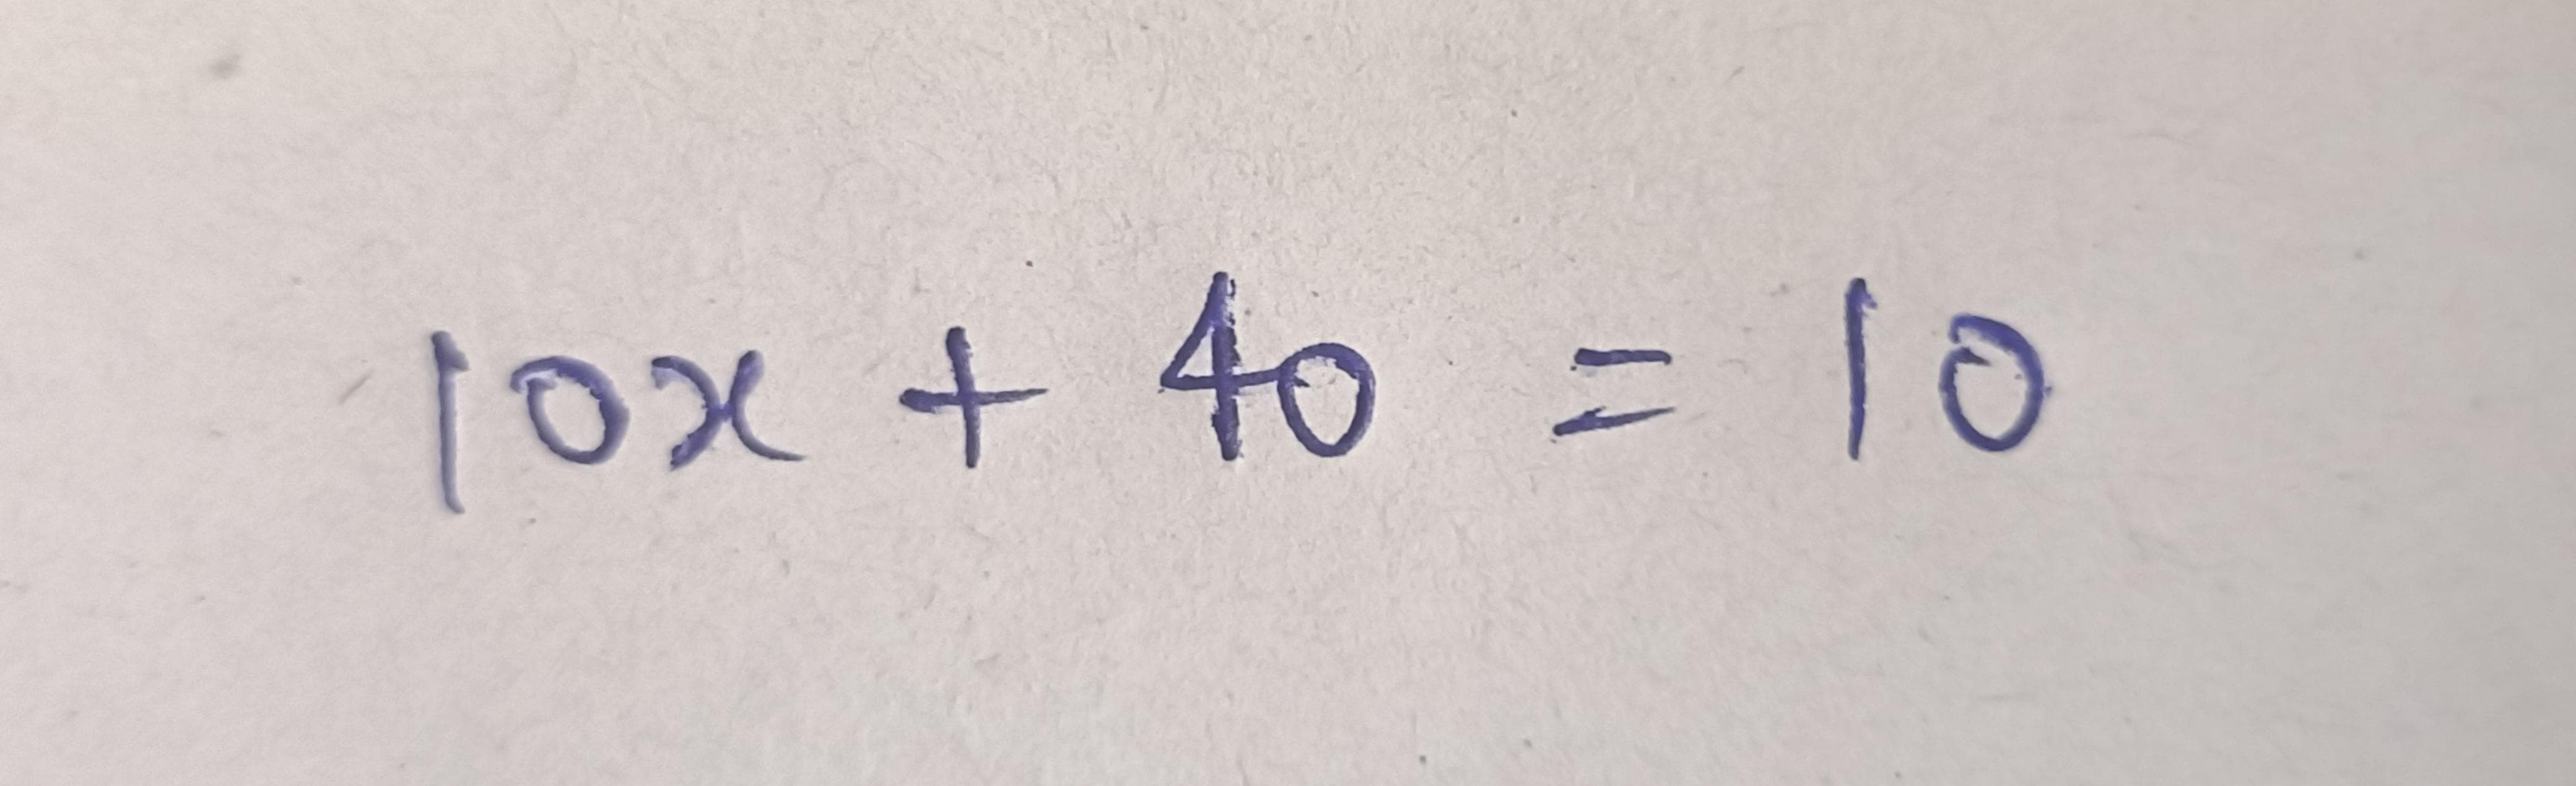 10x + 40 = 10